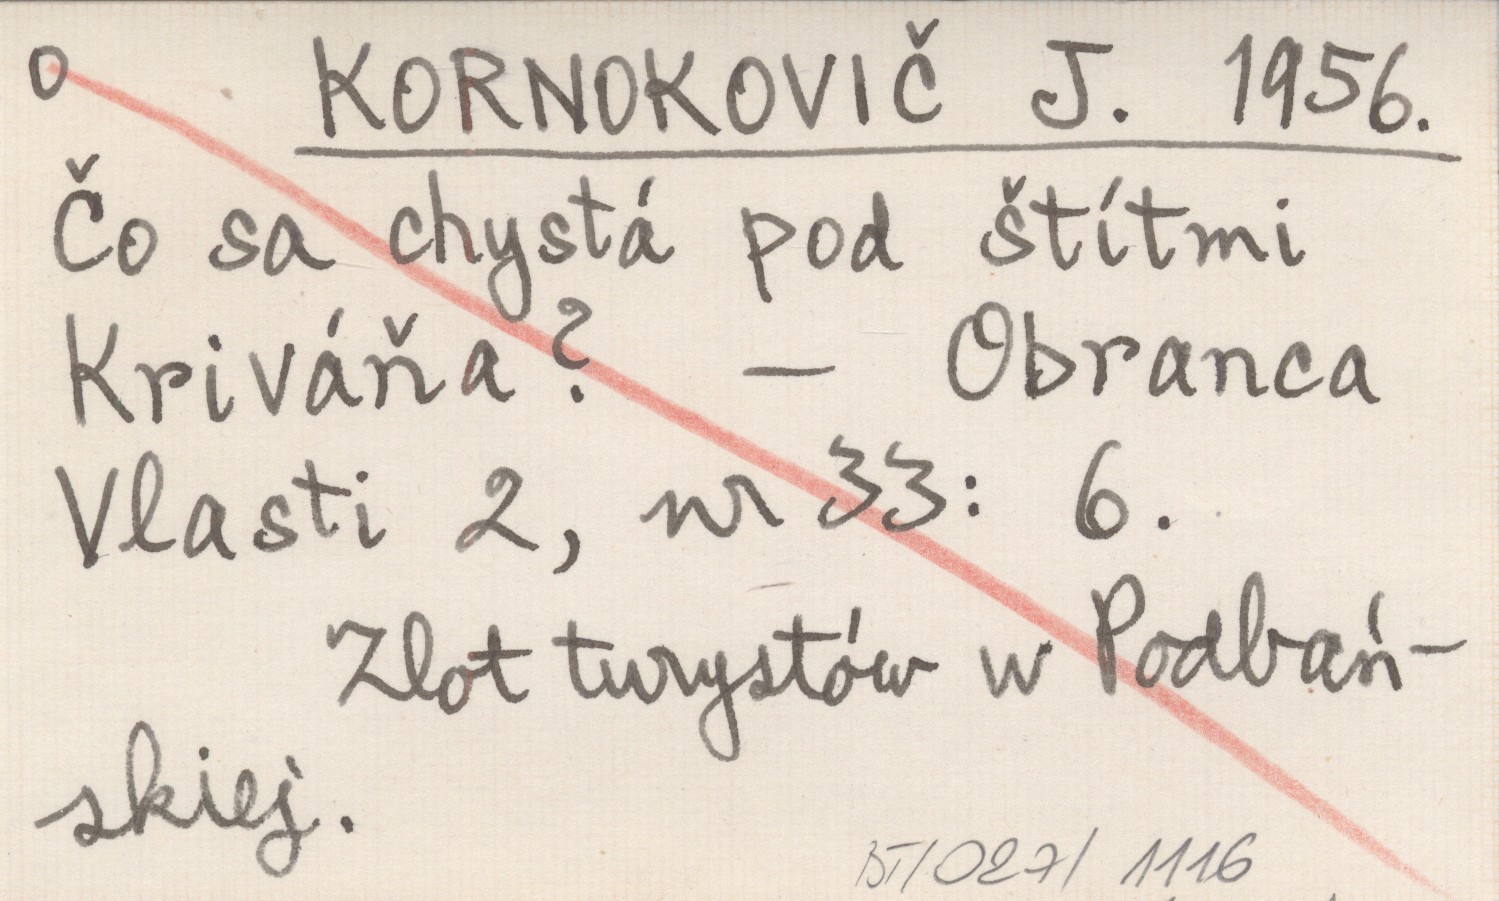 O KORNOKOVIČ J. 1956.
Čo sa chystá pod štítmi
Kriváňa? — Obranca
Vlasti 2, nr 33: 6.
Zlot turystów w Podbań-
skiej.
BT/027/ 1116